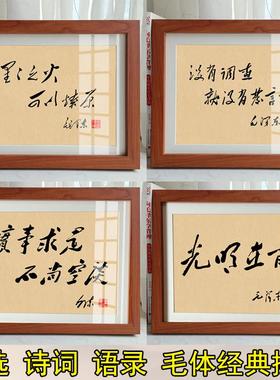 星之火
可以燎原
毛泽东
没有调查
就没有发言
毛泽东
实事求是
不尚空谈
光明在前
毛泽东
选 诗词 语录 毛体经典